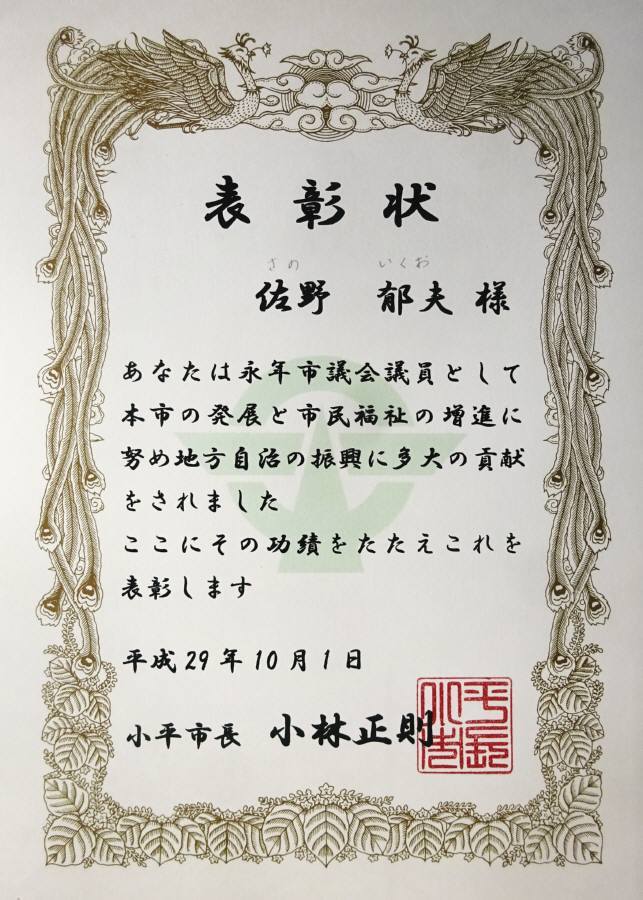 表彰状
さの いくお
佐野 郁夫 様
あなたは永年市議会議員として
本市の発展と市民福祉の増進に
努め地方自治の振興に多大の貢献
をされました
ここにその功績をたたえこれを
表彰します
平成29年10月1日
小平市長 小林正則